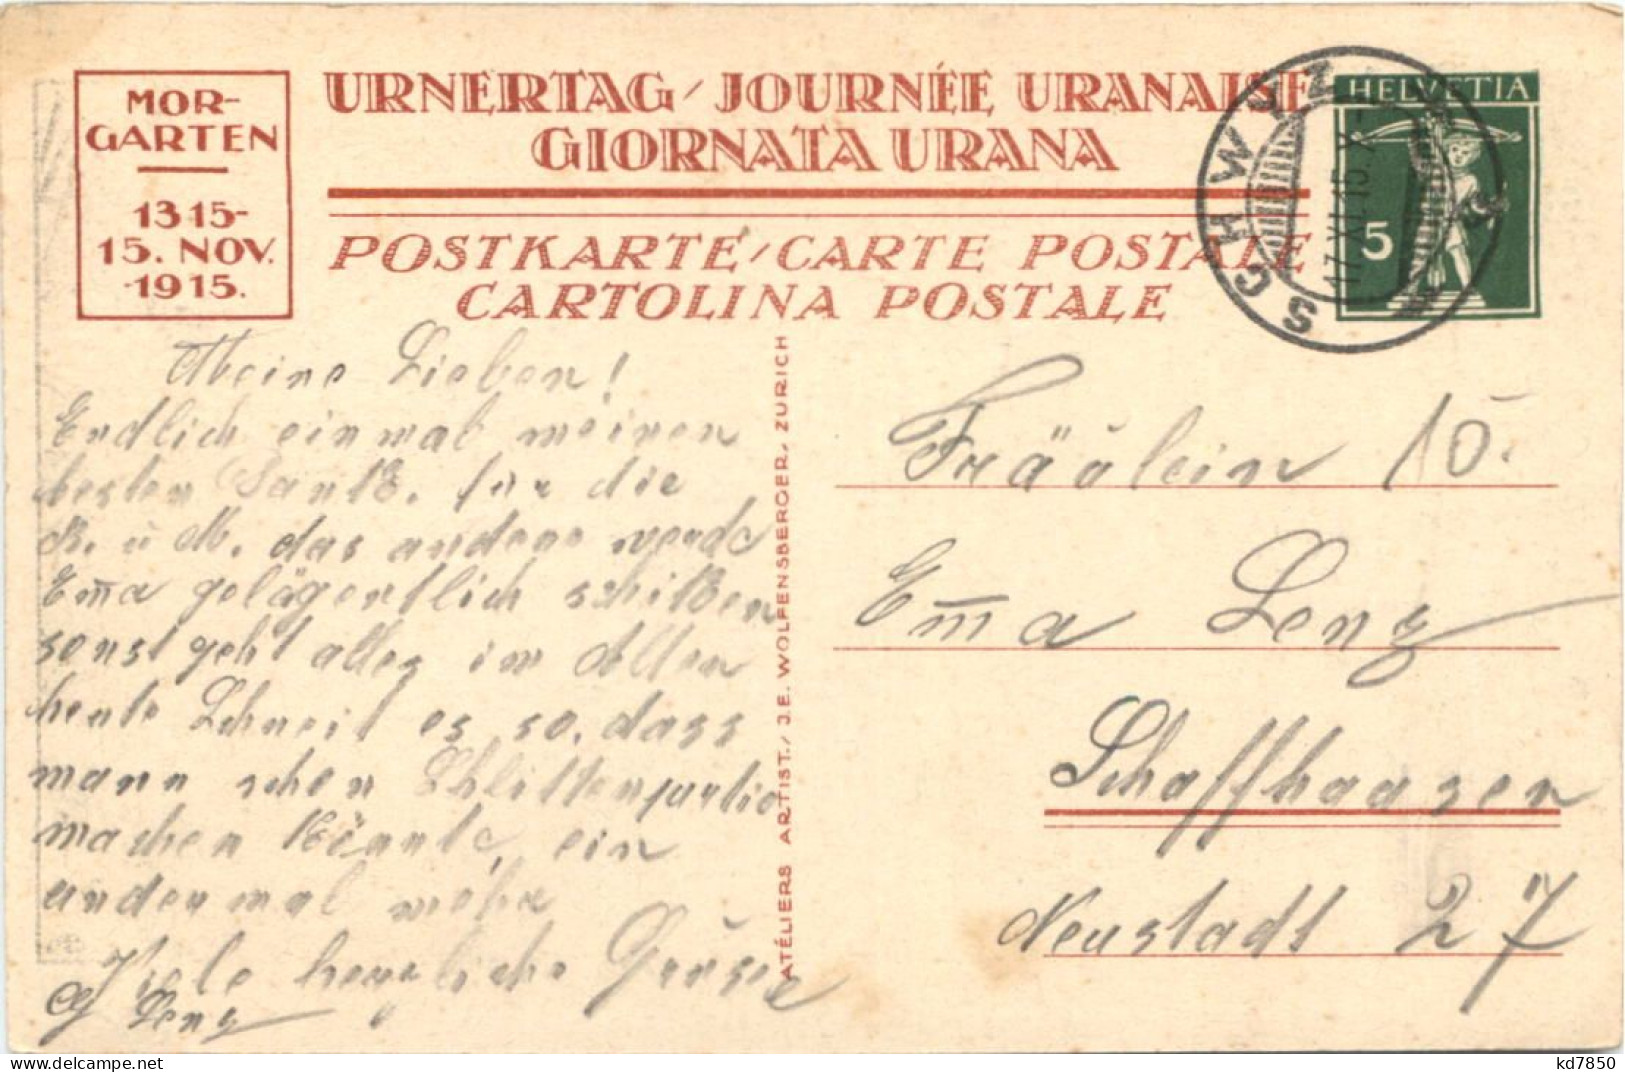 MOR-
GARTEN
1315-
15. NOV.
-1915.
URNERTAG / JOURNÉE URANAISE
GIORNATA URANA
POSTKARTE / CARTE POSTALE
CARTOLINA POSTALE
HELVETIA
5
SCHWYZ
17.XI.15.X-
Meine Lieben!
Endlich einmal meinen
besten Dank. für die
K. u M. das andere werde
Em̅a gelägentlich schiken
sonst geht alles im Alten
heute Schneit es so, dass
mann schon Schlittenpartie
machen könnte, ein
ander mal mehr
Viele herzliche Grüsse
Lenz
ATÉLIERS ARTIST. / J.E. WOLFENSBERGER, ZÜRICH
Fräulein 10.
Em̅a Lenz
Schaffhausen
Neustadt 27
kd7850